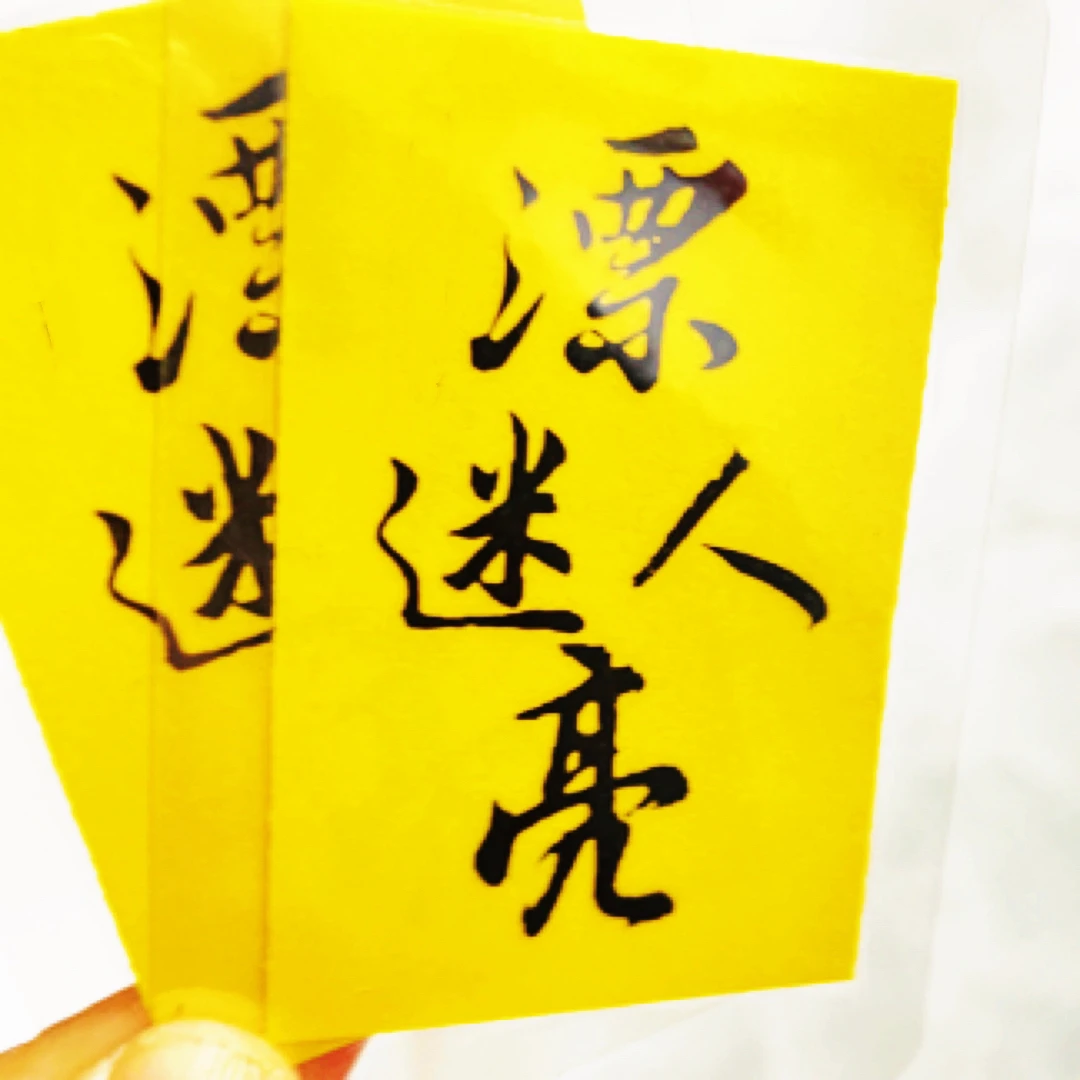 漂
迷人
亮
漂
迷